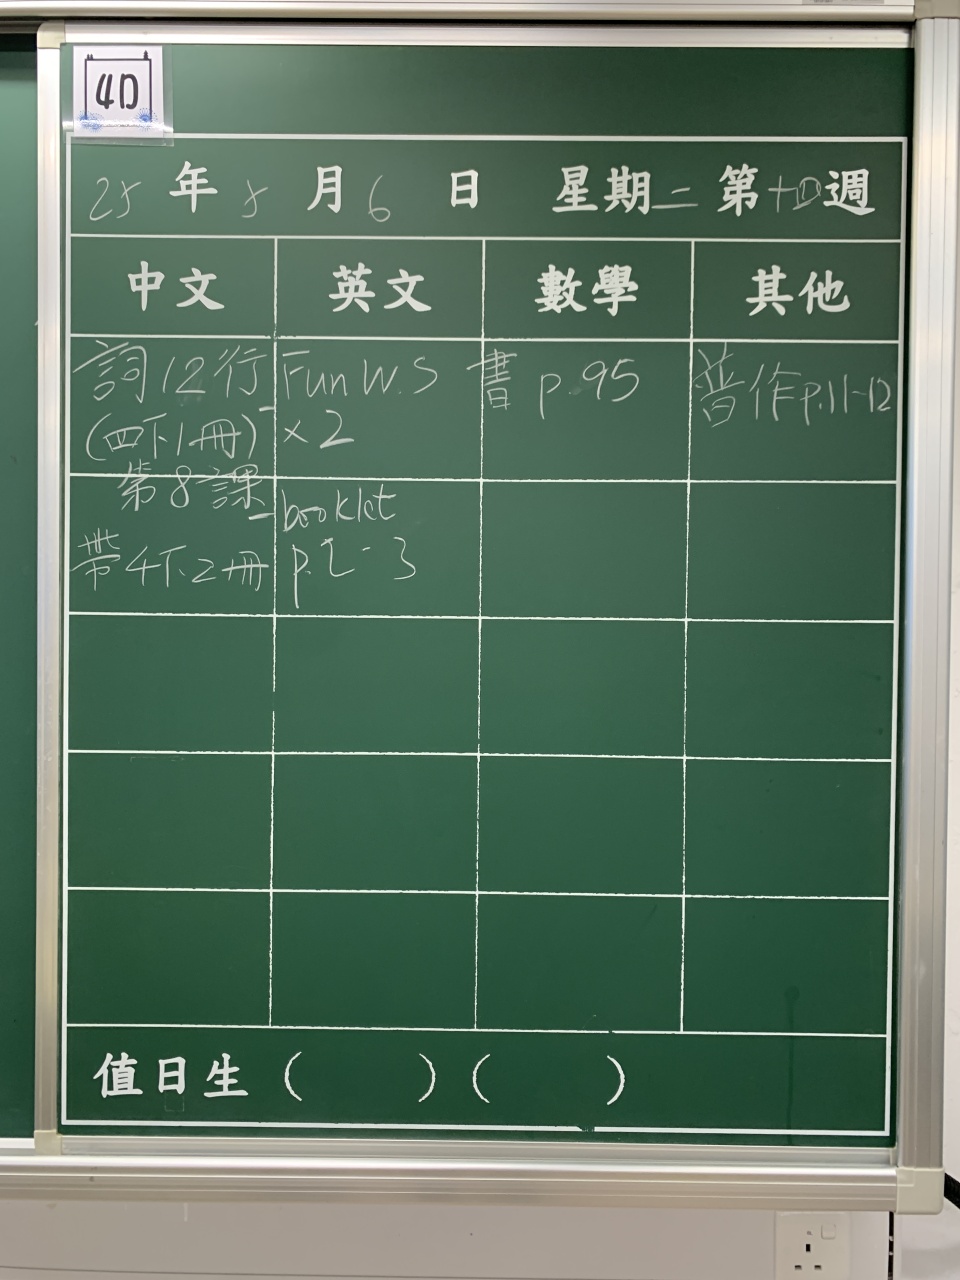 4D
25 年 5 月 6 日 星期二 第十四週
中文 英文 數學 其他
詞12行 Fun W.S 書 p.95 普作p.11-12
(四下1冊) ×2
第8課 booklet
帶4下2冊 p.2-3
值日生 ( ) ( )